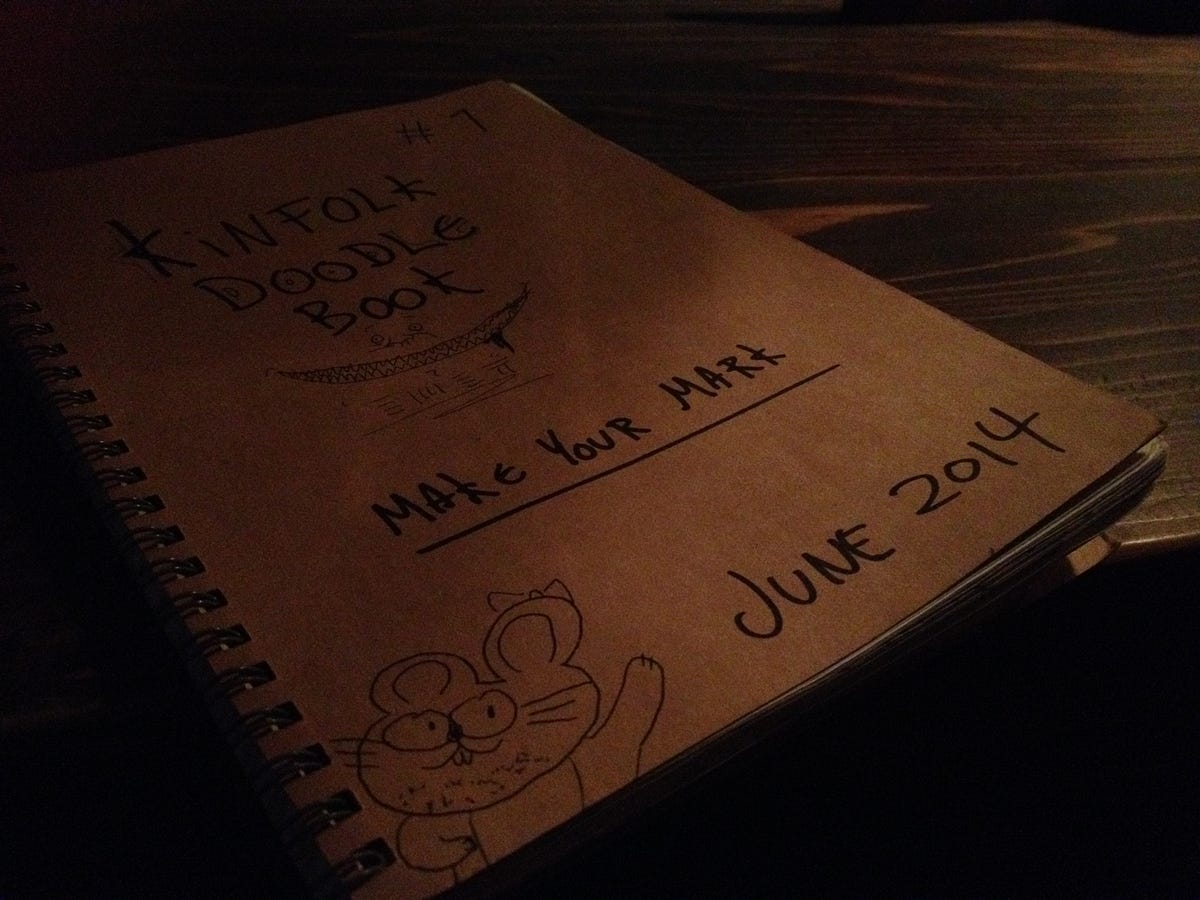 # 7
KiNFOLK
DOODLE
BOOK
MAKE YOUR MARK
JUNE 2014